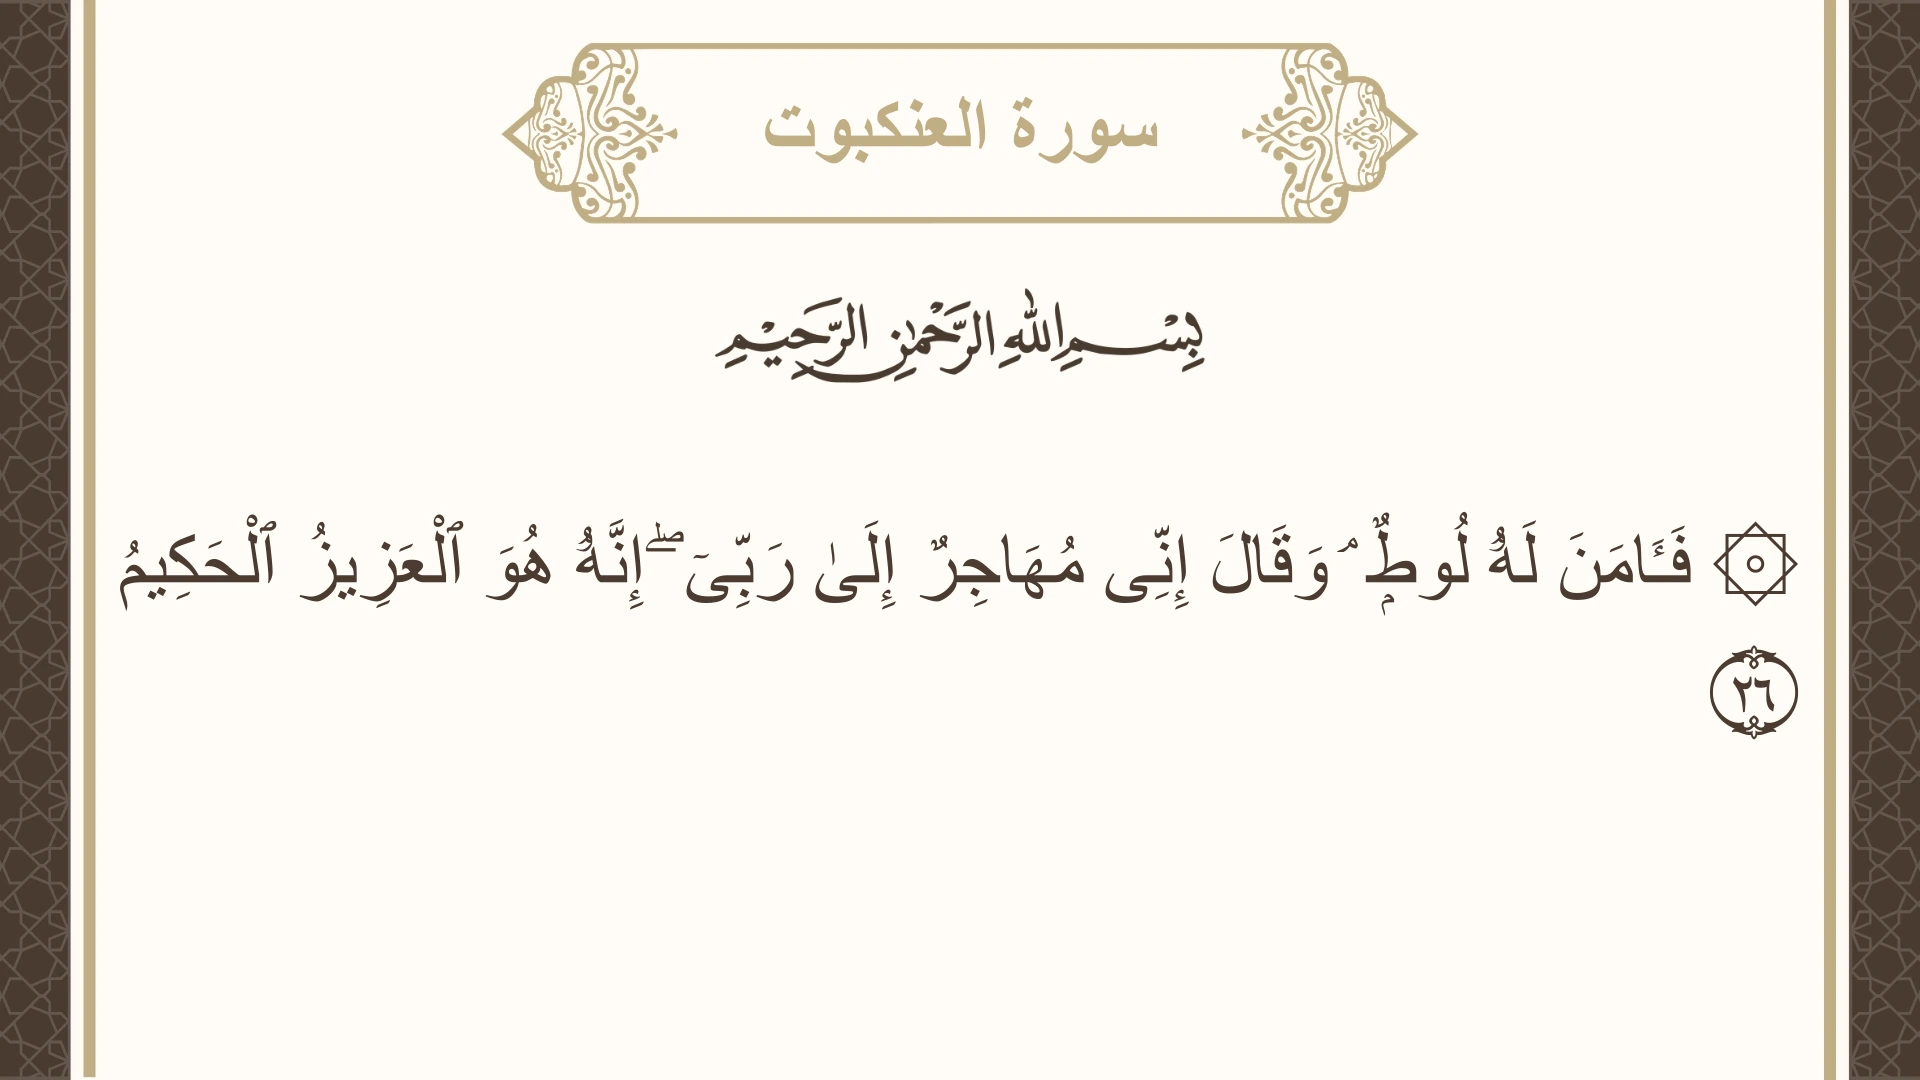 سورة العنكبوت
بِسْمِ اللهِ الرَّحْمٰنِ الرَّحِيْمِ
۞ فَـَٔامَنَ لَهُۥ لُوطٌۭ ۘ وَقَالَ إِنِّى مُهَاجِرٌ إِلَىٰ رَبِّىٓ ۖ إِنَّهُۥ هُوَ ٱلْعَزِيزُ ٱلْحَكِيمُ
٢٦